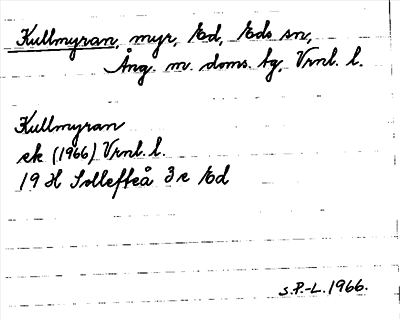 Kullmyran, myr, Ed, Eds sn,
Ång. m. doms. tg, Vrnl. l.
Kullmyran
ek (1966) Vrnl. l.
19 H Sollefteå 3 e Ed
s. P.-L. 1966.